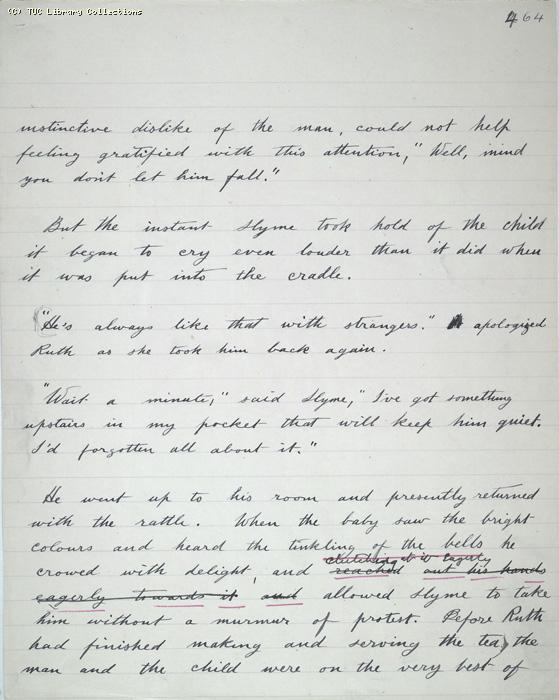 (C) TUC Library Collections
464
instinctive dislike of the man, could not help
feeling gratified with this attention, "Well, mind
you don't let him fall."
But the instant Slyme took hold of the child
it began to cry even louder than it did when
it was put into the cradle.
"He's always like that with strangers." apologized
Ruth as she took him back again.
"Wait a minute," said Slyme, "I've got something
upstairs in my pocket that will keep him quiet.
I'd forgotten all about it."
He went up to his room and presently returned
with the rattle. When the baby saw the bright
colours and heard the tinkling of the bells he
clutching at it eagerly
crowed with delight, and reached out his hands
eagerly towards it and allowed Slyme to take
him without a murmur of protest. Before Ruth
had finished making and serving the tea, the
man and the child were on the very best of